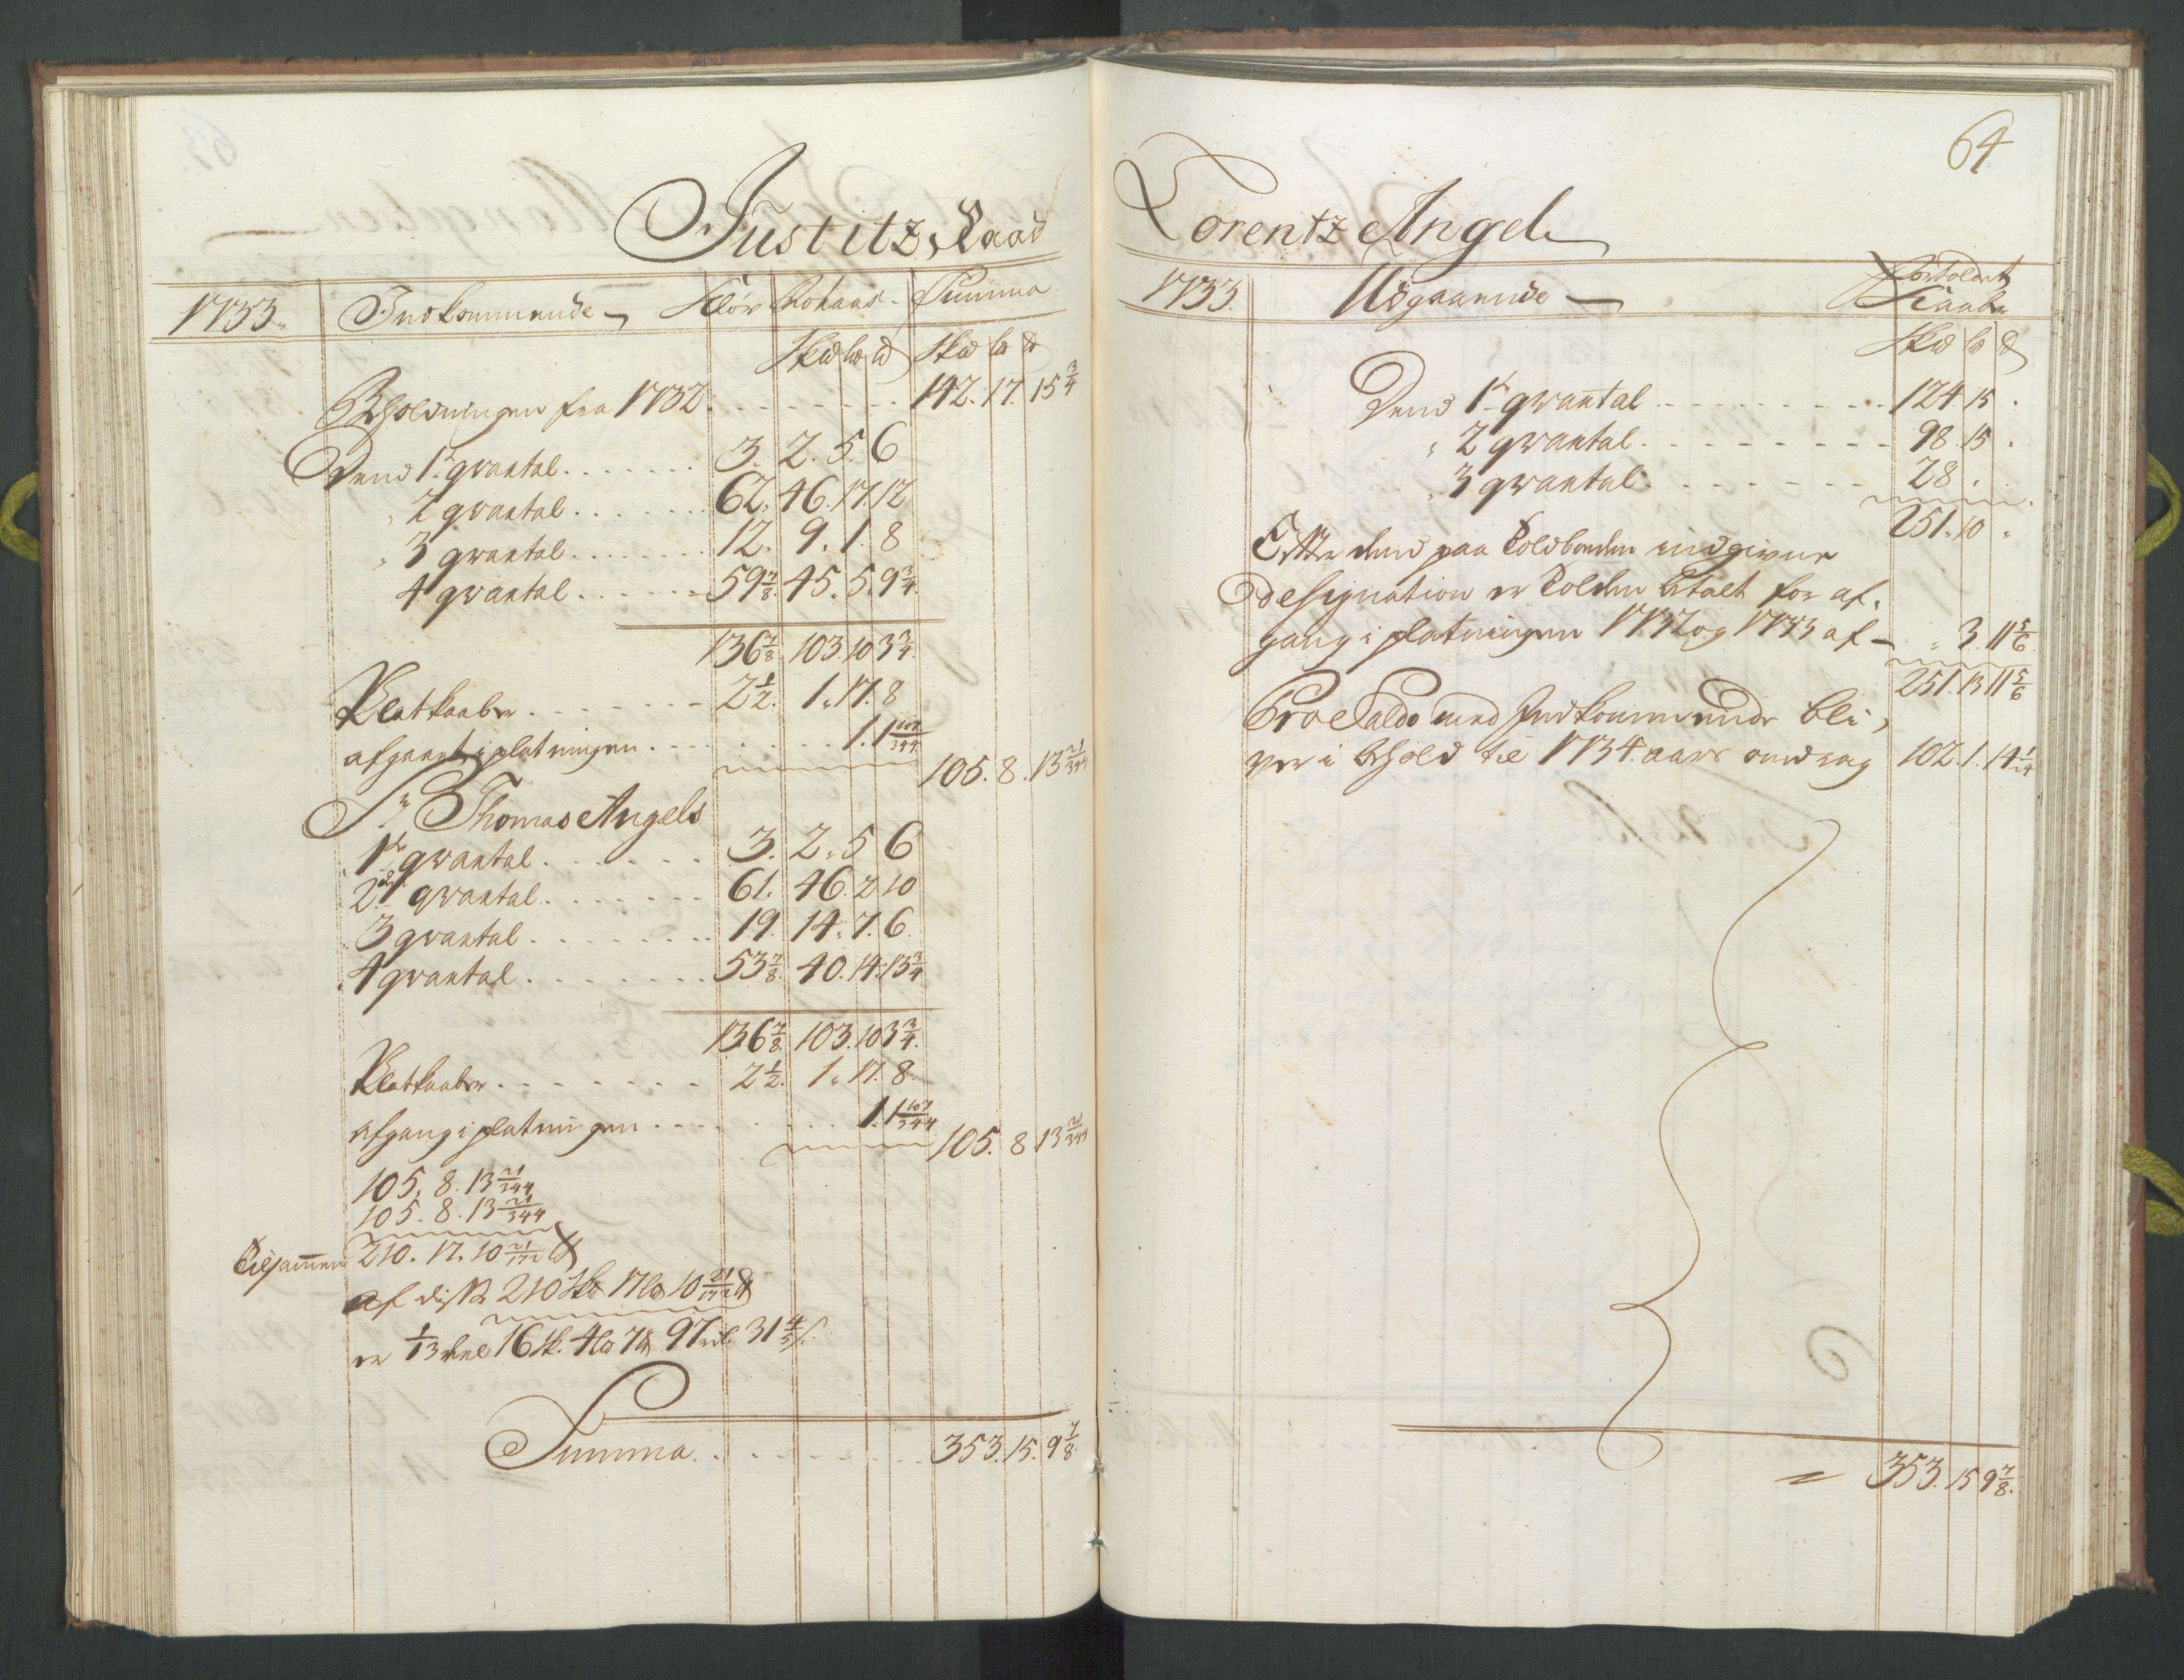 Justitz Raad
1733. Indkommende Kløv Skhaar. Summa
Skd lb d Skd lb d
Beholdningen fra 1732. 142. 17. 15 3/4
Dend 1te qvartal. 3. 2. 5. 6
2 qvartal. 62. 46. 17. 12
3 qvartal. 12. 9. 1. 8
4 qvartal. 59 7/8. 45. 5. 9 3/4.
136 7/8. 103. 10 3 3/4.
Platkaaber. 2 1/2. 1. 17. 8
afgaaet i platningen. 1. 1 107/344
105. 8. 13 21/344
Sr Thomas Angels
1te qvartal. 3. 2. 5 6
2det qvartal. 61. 46. 2 10
3 qvartal. 19. 14. 7. 6
4 qvartal. 53 7/8. 40. 14. 13 3/4
136 7/8. 103. 10 3 3/4.
Platkaaber. 2 1/2. 1. 17. 8.
afgang i platningen. 1. 1 107/344
105. 8 13 21/344
105. 8. 13 21/344
105. 8. 13 21/344
Tilsamen 210. 17. 10 21/172 ℔
af disse 210 Sk 17 lb 10 21/172 ℔
er 1/13 deel 16 sk. 4 lb 7 ℔ 97 rd. 31 4/5 s.
Summa. 353. 15. 9 7/8
64
Lorentz Angel
1733. Udgaaende Fortoldet
Kaaber
Skd lb ℔
Dend 1te qvartal 124. 15.
2 qvartal. 98. 15.
3 qvartal. 28.
251. 10
Efter dend paa Toldboden indgivne
designation er Tolden betalt for af-
gang i platningen 1732 og 1733 af - 3. 11 5/6
251. 13 11 5/6
Proe Saldo med Indkommende bli,
ver i behold til 1734 aars andrag 102. 1. 14 1/24
353. 15 9 7/8.